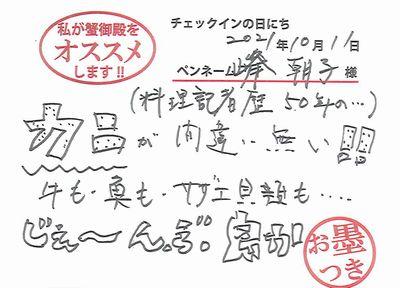 私が蟹御殿を
オススメ
します!!
チェックインの日にち
2021年10月11日
ペンネーム 朝子 様
(料理記者歴 50年の…)
が 間違い無い!!
牛も・魚も・サザエ貝類も・・・・
じぇ〜ん、ぶ。
お墨
つき